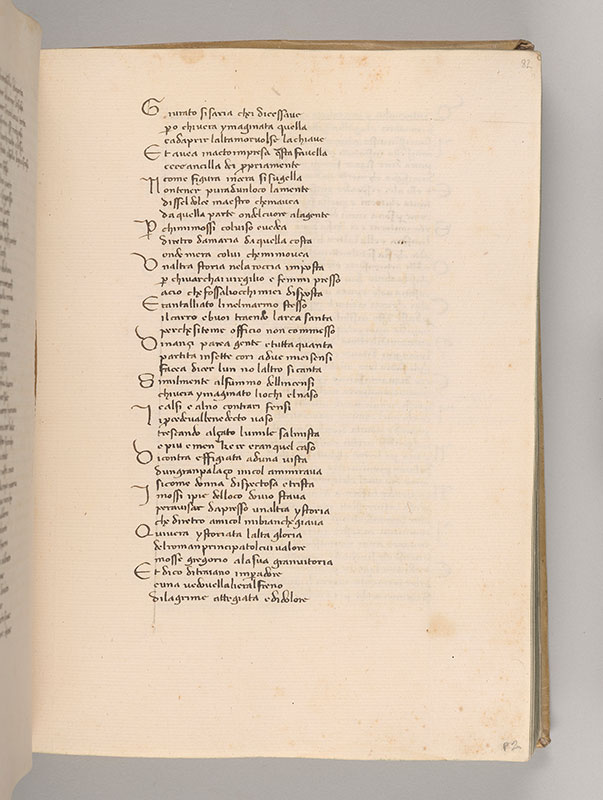 Giurato si saria chei dicessaue
po chiuera ymaginata quella
cadaprir laltamor uolse la chiaue
Et auea inacto impresa qsta fauella
ecce ancilla dei ppriamente
come figura incera si sugella
Non tener pur ad un loco la mente
dissel dolce maestro che mauea
da quella parte ondel cuore a la gente
Per chi mi mossi col uiso e uedea
diretro da maria da quella costa
onde mera colui che mi mouea
Unaltra storia nela roccia imposta
p chiuarchai uirgilio e femmi presso
acio che fossaliocchi miei disposta
Era intalliato li nel marmo stesso
il carro e buoi traendo larca santa
perche si teme officio non commesso
Dinanzi parea gente e tutta quanta
partita insette cori a due miei sensi
facea dicer lun no laltro si canta
Similmente al fummo dellincensi
chiuera ymaginato liochi el naso
e alsi e alno contrari fensi
Ipcedeua llenedecto uaso
trescando alzato lumile salmista
e piu e men ke re era in quel caso
Dicontra effigiata ad una uista
dun gran palazo micol ammiraua
si come donna dispectosa e trista
I mossi ipie del loco douio staua
per auisar da presso unaltra ystoria
che diretro amicol mi biancheggiaua
Quiuera ystoriata lalta gloria
del roman principato il cui ualore
mosse gregorio a la sua gran uitoria
Et dico di traiano impadore
e una uedouella li era al freno
di lagrime atteggiata e di dolore